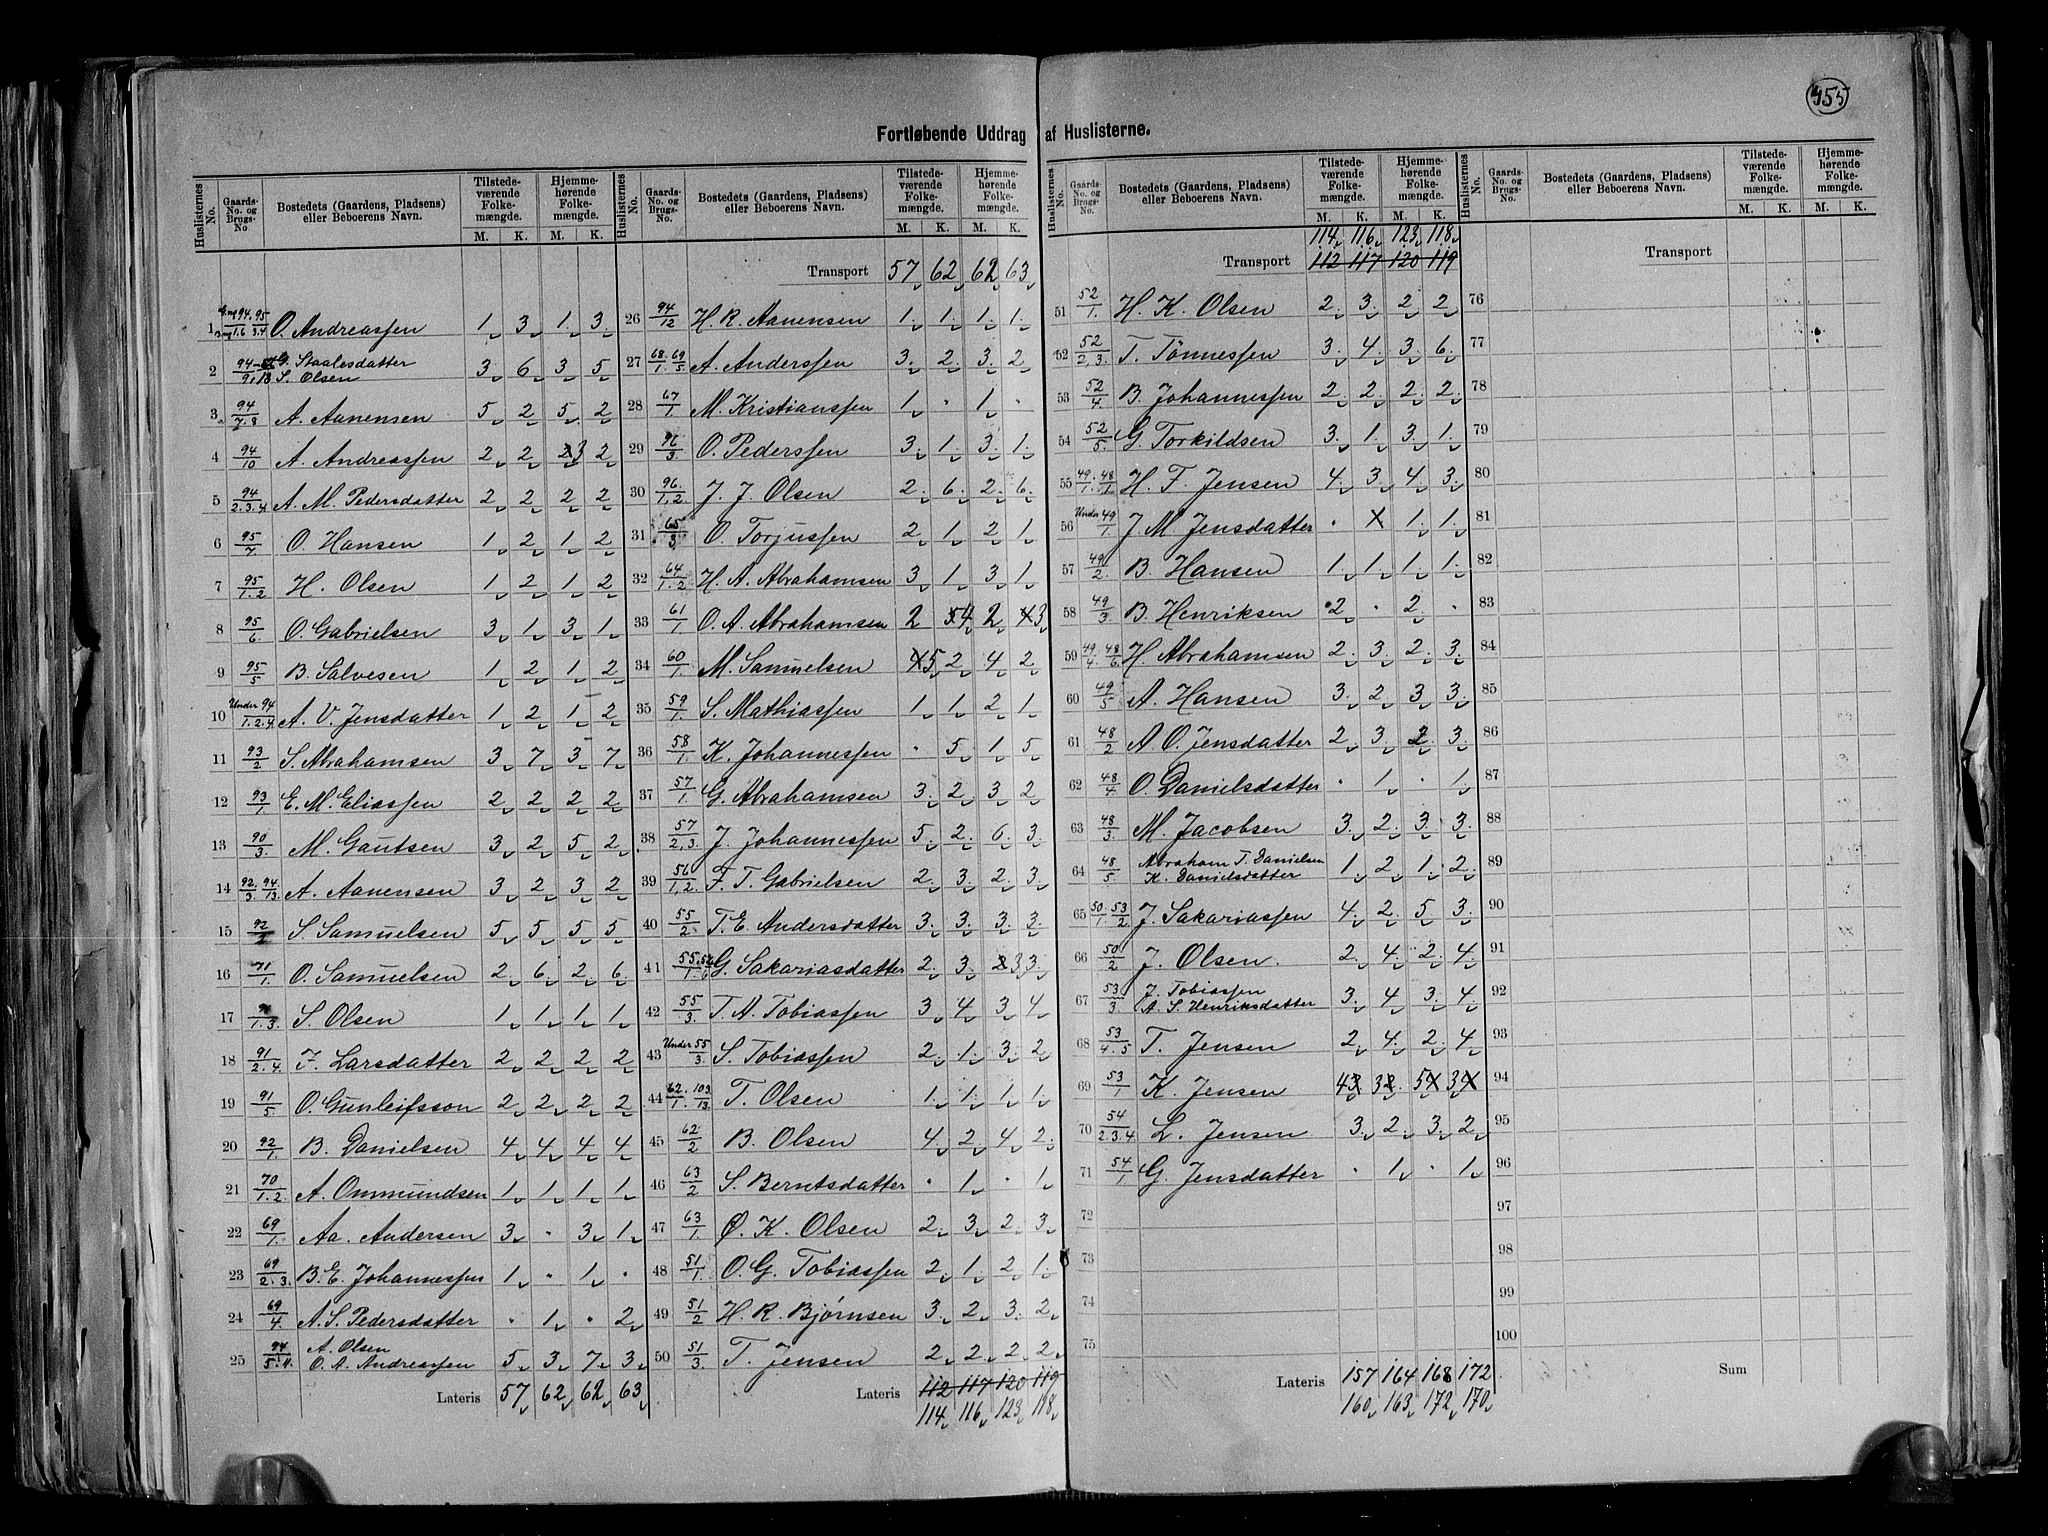 955
Fortløbende Uddrag af Huslisterne.
Huslisternes No. | Gaards-No. og Brugs-No. | Bostedets (Gaardens, Pladsens) eller Beboerens Navn. | Tilstedeværende Folkemængde. M. K. | Hjemmehørende Folkemængde. M. K.
1 94.95 / 1.6 3.4 O. Andreassen 1 3 1 3
2 94 / 9.13 G. Staalesdatter S. Olsen 3 6 3 5
3 94/7.8 A. Aanensen 5 2 5 2
4 94/10 A. Andreassen 2 2 3 2
5 94/2.3.4 A. M. Pedersdatter 2 2 2 2
6 95/7 O. Hansen 1 2 1 2
7 95/1.2 H. Olsen 1 2 1 2
8 95/6 O. Gabrielsen 3 1 3 1
9 95/5 B. Salvesen 1 2 1 2
10 Under 94/1.2.4 A. V. Jensdatter 1 2 1 2
11 93/2 S. Abrahamsen 3 7 3 7
12 93/1 E. M. Eliassen 2 2 2 2
13 90/3 M. Gautsen 3 2 5 2
14 92/3. 94/13. A. Aanensen 3 2 3 2
15 92/2 S. Samuelsen 5 5 5 5
16 71/1. O. Samuelsen 2 6 2 6
17 /1.3 S. Olsen 1 1 1 1
18 91/2.4. F. Larsdatter 2 2 2 2
19 91/5. O. Gunleifsson 2 2 2 2
20 92/1. B. Danielsen 4 4 4 4
21 70/1.2. A. Ommundsen 1 1 1 1
22 69/1. Aa. Andersen 3 " 3 1
23 69/2.3. B. E. Johannessen 1 " 1 "
24 69/4 A. S. Pedersdatter " 1 " 2
25 94/5.11. A. Olsen O. A. Andreassen 5 3 7 3
Lateris 57 62 62 63
Huslisternes No. | Gaards-No. og Brugs-No. | Bostedets (Gaardens, Pladsens) eller Beboerens Navn. | Tilstedeværende Folkemængde. M. K. | Hjemmehørende Folkemængde. M. K.
Transport 57 62 62 63
26 94/12 H. R. Aanensen 1 1 1 1
27 68/1. 69/5. A. Anderssen 3 2 3 2
28 67/1 M. Kristianssen 1 " 1 "
29 96/3. O. Pederssen 3 1 3 1
30 96./1.2. J. J. Olsen 2 6 2 6
31 65/3 O. Torjussen 2 1 2 1
32 64/1.2 H. A. Abrahamsen 3 1 3 1
33 61/1 O. A. Abrahamsen 2 4 2 3
34 60/1. M. Samuelsen 5 2 4 2
35 59/1. S. Mathiassen 1 1 2 1
36 58/1. K. Johannessen " 5 1 5
37 57/1 G. Abrahamsen 3 2 3 2
38 57/2,3. J. Johannessen 5 2 6 3
39 56/1,2. F. T. Gabrielsen 2 3 2 3
40 55/2. T. E. Andersdatter 3 3 3 3
41 55.52/1. G. Sakariasdatter 2 3 3 3
42 55/3. T. A. Tobiassen 3 4 3 4
43 Under 55/3. S. Tobiassen 2 1 3 2
44 62/1. 103/13. T. Olsen 1 1 1 1
45 62/2 B. Olsen 4 2 4 2
46 63/2 S. Berntsdatter " 1 " 1
47 63/1. O. K. Olsen 2 3 2 3
48 51/1. O. G. Tobiassen 2 1 2 1
49 51/2 H. R. Bjørnsen 3 2 3 2
50 51/3. T. Jensen 2 2 2 2
Lateris 112 117 120 119
114 116 123 118
Huslisternes No. | Gaards-No. og Brugs-No. | Bostedets (Gaardens, Pladsens) eller Beboerens Navn. | Tilstedeværende Folkemængde. M. K. | Hjemmehørende Folkemængde. M. K.
114 116 123 118
Transport 112 117 120 119
51 52/1. H. K. Olsen 2 3 2 2
52 52/2,3. T. Tønnessen 3 4 3 6
53 52/4. B. Johannessen 2 2 2 2
54 52/5. G. Torkildsen 3 1 3 1
55 49/1. 48/1. H. F. Jensen 4 3 4 3
56 Under 49/1. J. M. Jensdatter " X 1 1
57 49/2. B. Hansen 1 1 1 1
58 49/3. B. Henriksen 2 " 2 "
59 49/4. 48/6. H. Abrahamsen 2 3 2 3
60 49/5 A. Hansen 3 2 3 3
61 48/2 A. O. Jensdatter 2 3 2 3
62 48/4. O. Danielsdatter " 1 " 1
63 48/3. M. Jacobsen 3 2 3 3
64 48/5 Abraham T. Danielsen K. Danielsdatter 1 2 1 2
65 50/1. 53/2. J. Sakariassen 4 2 5 3
66 50/2 J. Olsen. 2 4 2 4
67 53/3 J. Tobiassen A. S. Henriksdatter 3 4 3 4
68 53/4.5 T. Jensen 2 4 2 4
69 53/1 K. Jensen 4 3 5 3
70 54/2.3.4 L. Jensen 3 2 3 2
71 54/1 G. Jensdatter " 1 " 1
72
73
74
75
Lateris 157 164 168 172
160 163 172 170
Huslisternes No. | Gaards-No. og Brugs-No. | Bostedets (Gaardens, Pladsens) eller Beboerens Navn. | Tilstedeværende Folkemængde. M. K. | Hjemmehørende Folkemængde. M. K.
Transport
76
77
78
79
80
81
82
83
84
85
86
87
88
89
90
91
92
93
94
95
96
97
98
99
100
Sum